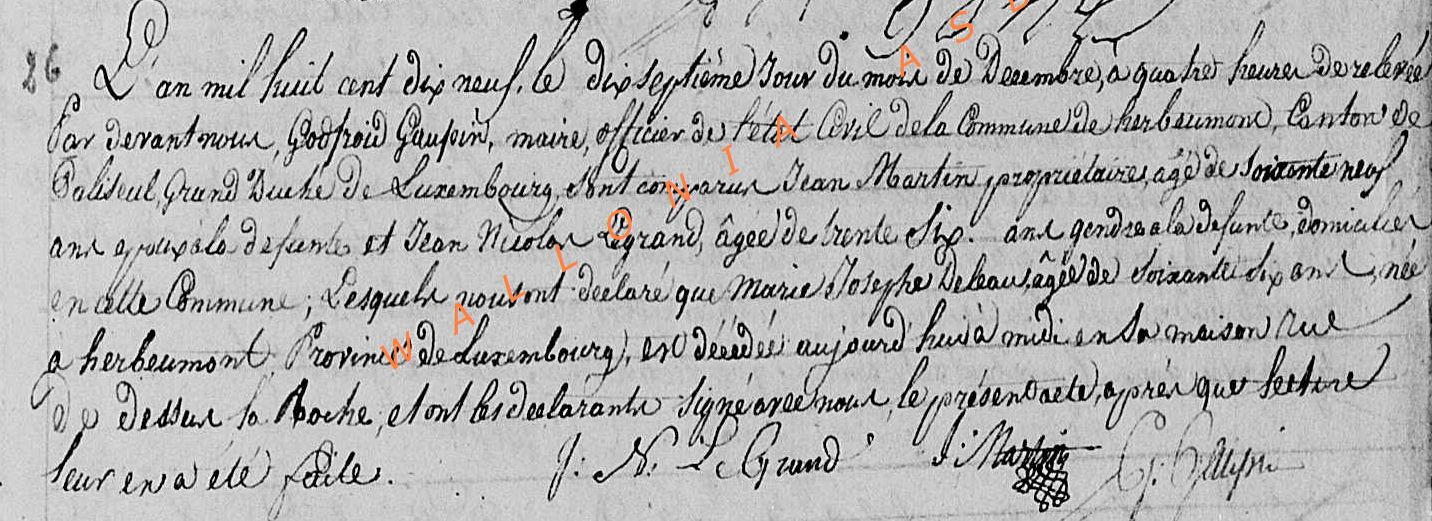 26
L'an mil huit cent dix neuf, le dix septième Jour du mois de Decembre, a quatre heures de relevée
Par devant nous, Godfroid Gaupin, maire, officier de l'état Civil de la Commune de herbeumont, Canton de
Paliseul, Grand Duché de Luxembourg, sont comparus Jean Martin propriétaire, agé de soixante neuf
ans epoux a la defunte et Jean Nicolas Legrand, âgée de trente Six. ans gendre a la defunte, domiciliés
en cette Commune; Lesquels nous ont declaré que Marie Josephe Deleau, âgée de Soixante Six ans, née
a herbeumont Province de Luxembourg, est décédée aujourd'hui à midi en Sa maison rue
de dessus la Roche, et ont les declarants signé avec nous, le présent acte, après que lecture
leur en a été faite. J: N. LeGrand J: Martin G: Gaupin
WALLONIA ASB